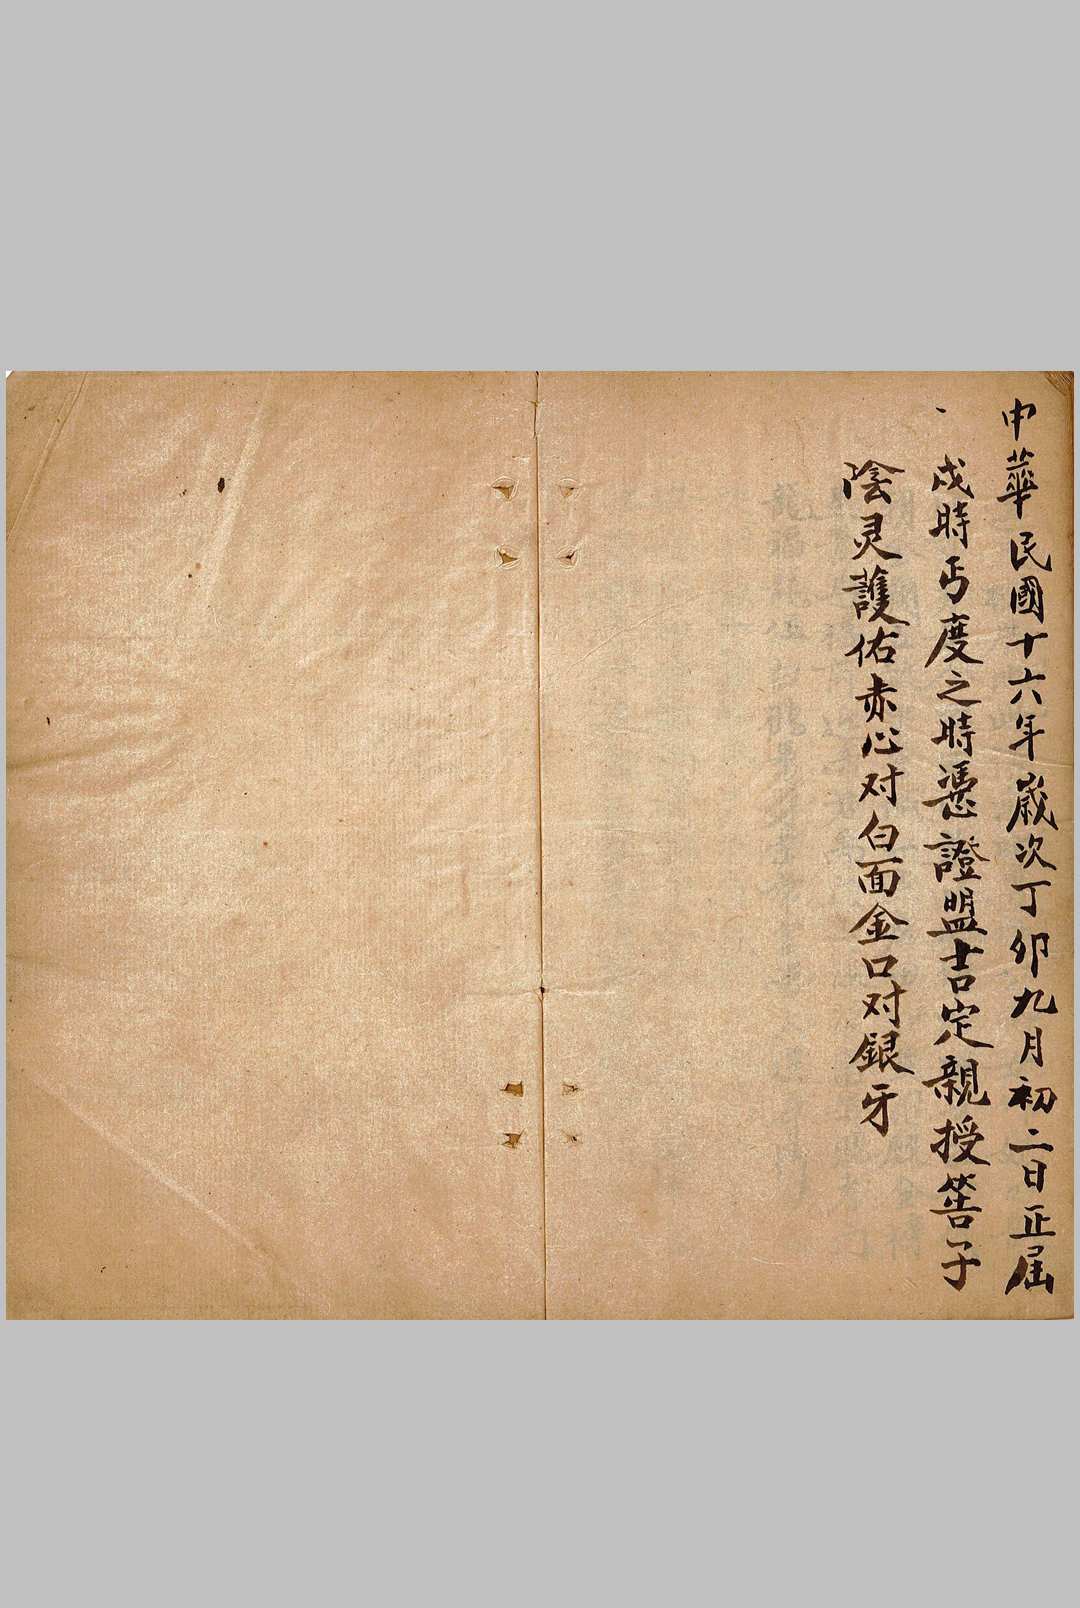 中華民國十六年歲次丁卯九月初二日正屆
戌時丐度之時憑證盟吉定親授筶子
陰灵護佑赤心对白面金口对銀牙